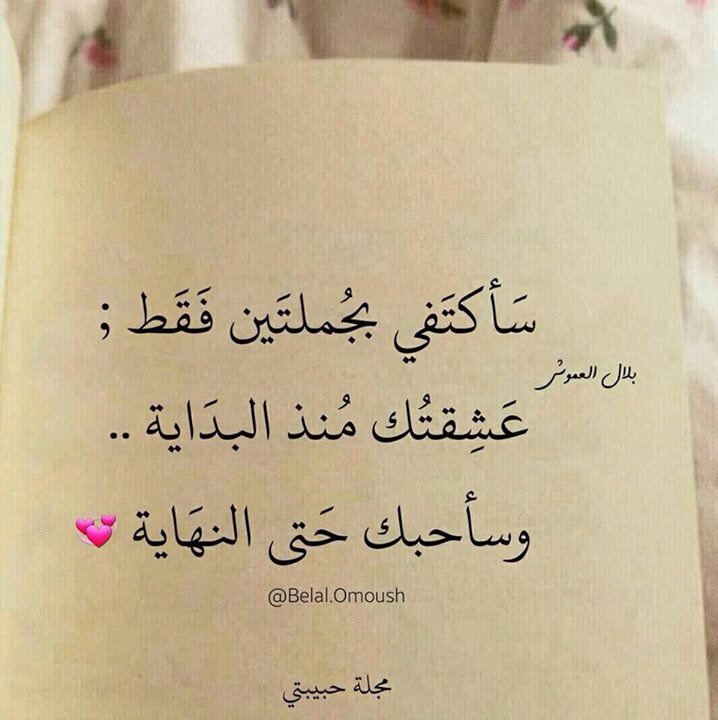 سَأكتَفي بجُملتَين فَقَط ;
بلال العموش
عَشِقتُك مُنذ البدَاية ..
وسأحبك حَتى النهَاية 💞
@Belal.Omoush
مجلة حبيبتي